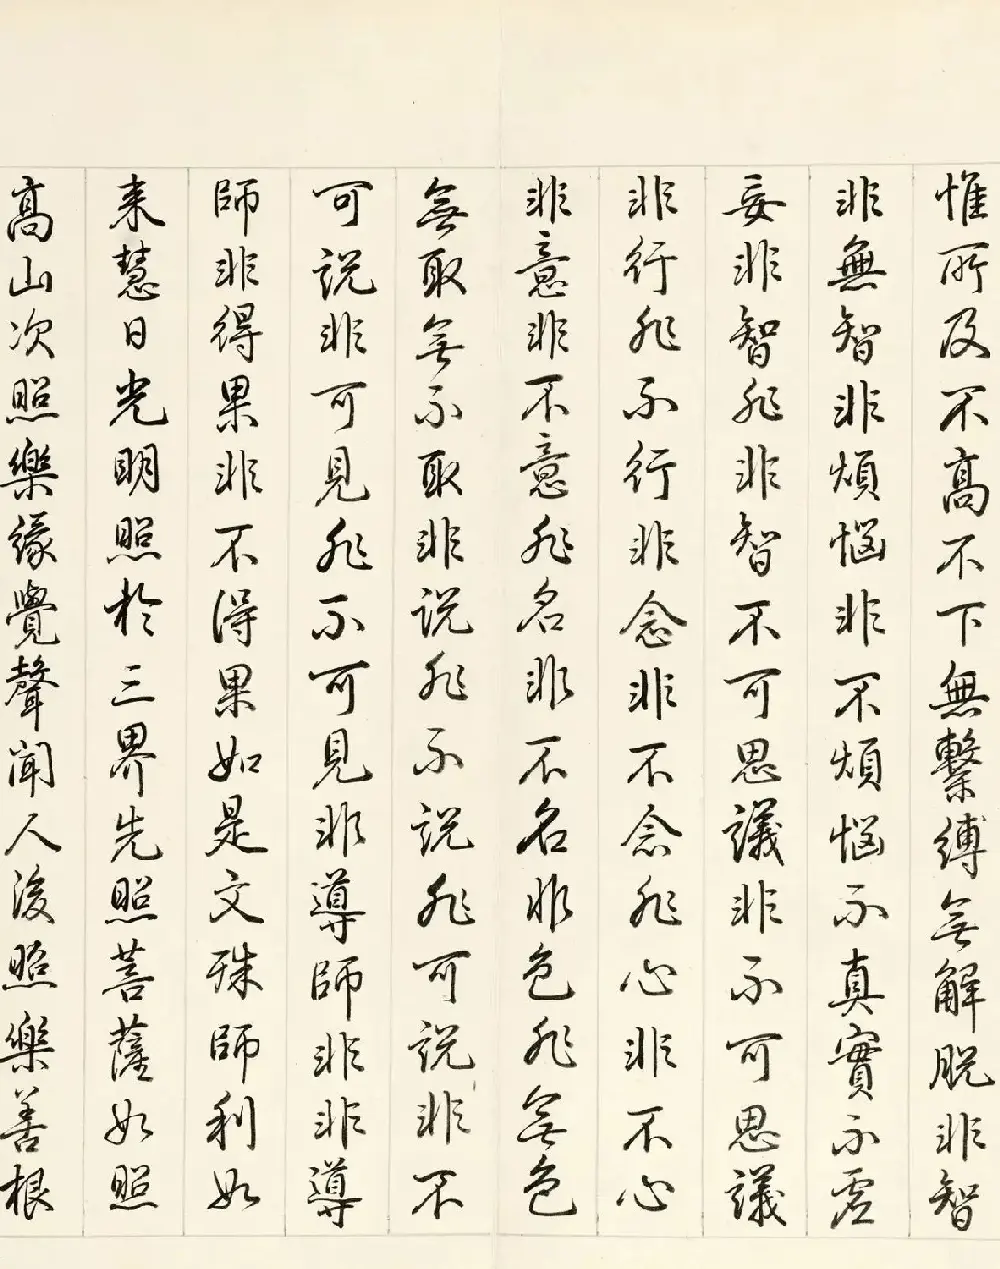 惟所及不高不下無繫縛無解脫非智
非無智非煩惱非不煩惱不真實不虛
妄非智非非智不可思議非不可思議
非行非不行非念非不念非心非不心
非意非不意非名非不名非色非無色
無取無不取非說非不說非可說非不
可說非可見非不可見非導師非非導
師非得果非不得果如是文殊師利如
来慧日光明照於三界先照菩薩如照
高山次照樂緣覺聲聞人後照樂善根